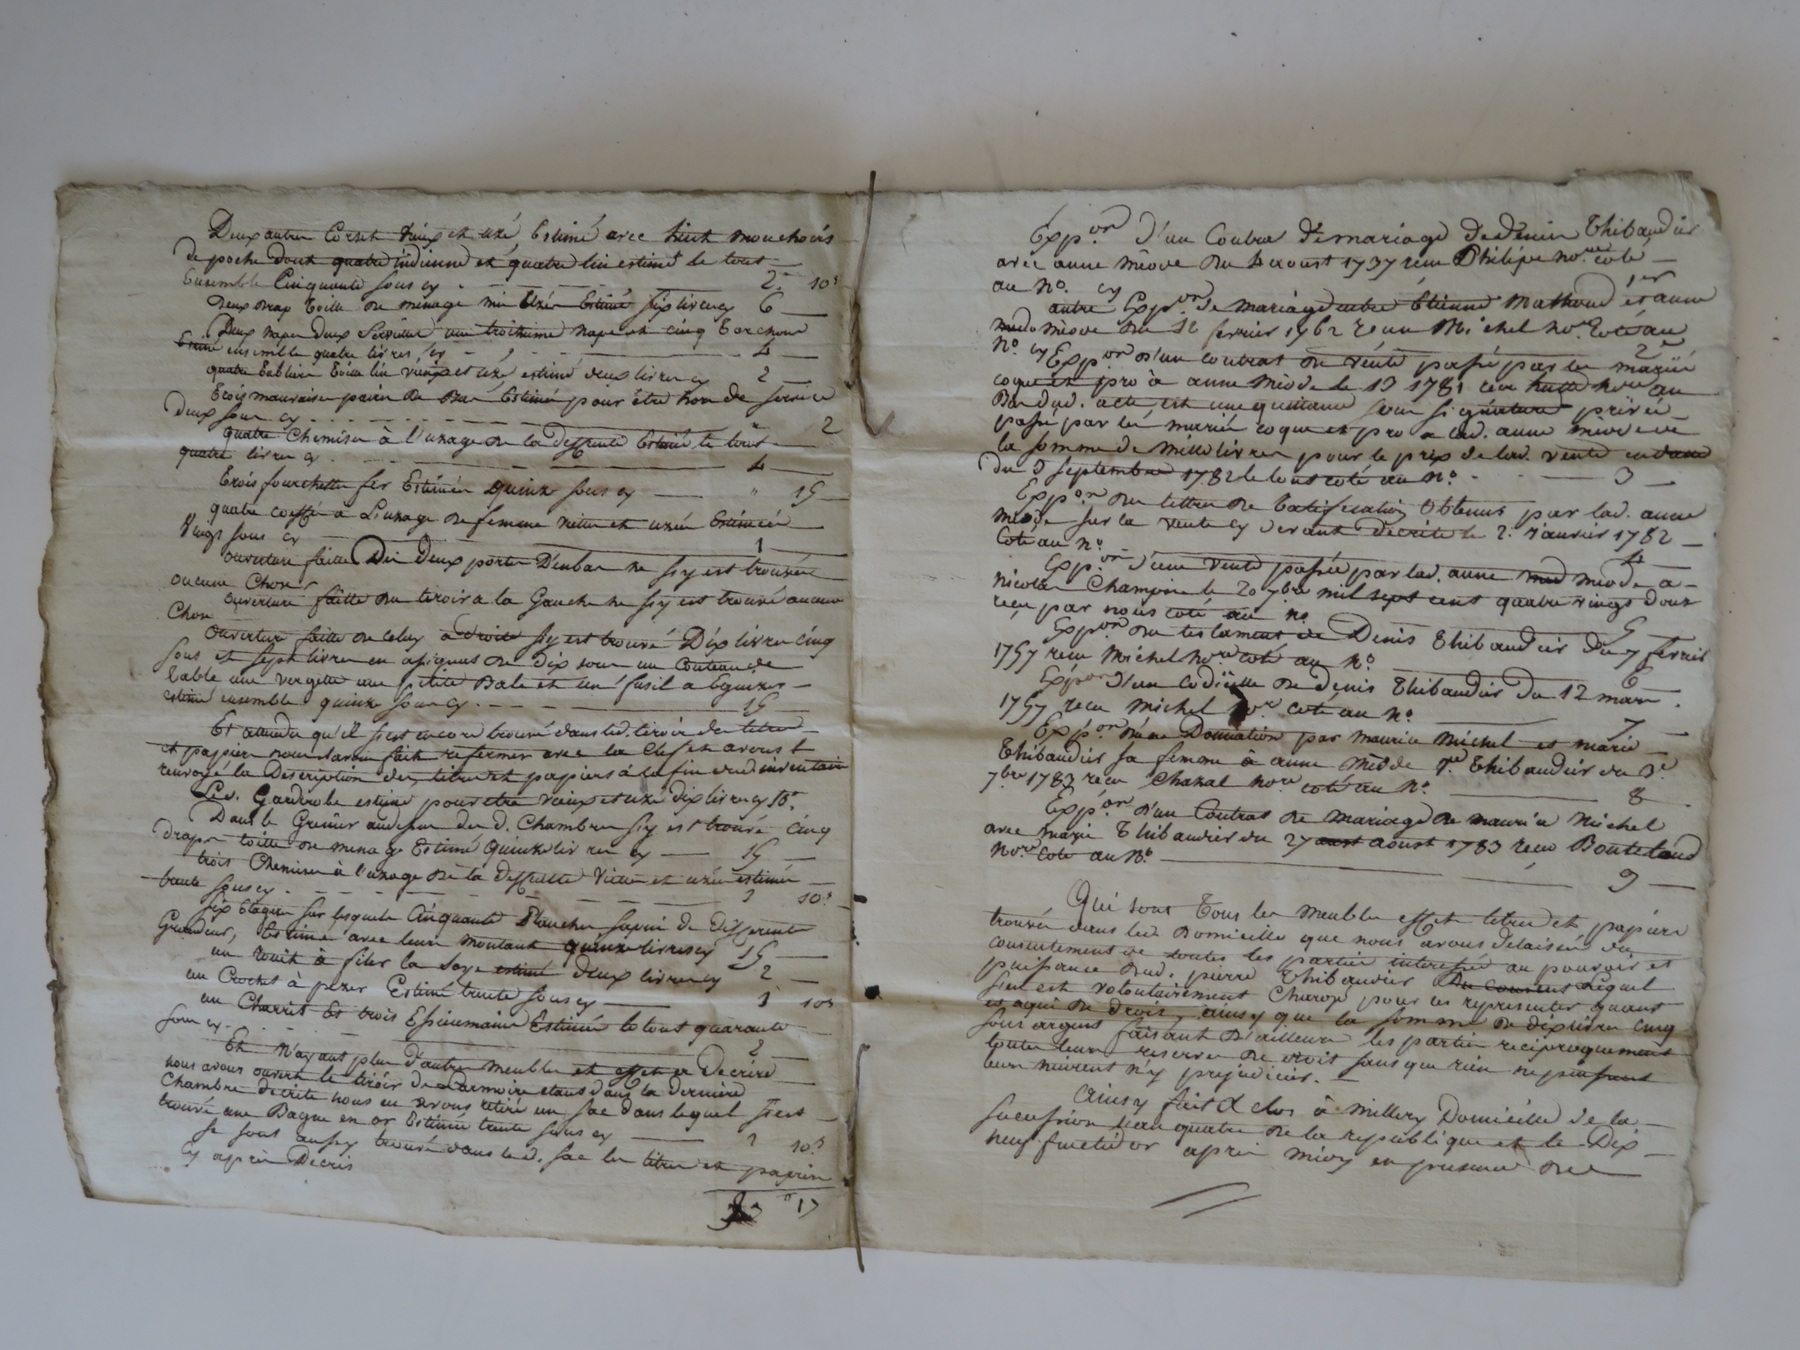 Deux autres Corset vieux et uzé Estimé avec huit mouchoirs
de poche dont quatre indienne et quatre lin estimé le tout
Ensemble Cinquante sous cy 2 10s
Deux drap toille de menage mi Uzés Estimé six livres cy 6
Deux nape deux Serviette une troisieme nape et cinq torchons
Estimé ensemble quatre livres cy 4
quatre tablier toille lin vieux et uzé estimé deux livres cy 2
trois mauvaise paire de Bas Estimé pour être hors de service
Deux sous cy 2
quatre Chemise à l'uzage de la deffunte Estimé le tout
quatre livres cy 4
trois fourchette fer Estimée quinze sous cy " 15
quatre coeffe à L'uzage de femme vieille et uzée Estimée
Vingt sous cy 1
ouverture faitte Des Deux porte D'enbas ne s'y est trouvée
aucune Chose
ouverture faitte du tiroir a la Gauche ne s'y est trouvé aucune
Chose
Ouverture faitte de celuy a droite s'y est trouvé Dix livres cinq
sous et sept livres en assignats de dix sous un Couteau de
table une vergette une petite Bale et un fusil a Eguizer
estimé ensemble quinze sous cy 15
Et attendu qu'il s'est encore trouvé dans led. tiroir des titres
et papiers nous l'avons fait refermer avec la clef et avons
renvoyé la Description des titres et papiers à la fin dud inventaire
Led. Garderobe estimé pour etre vieux et uzé dix livres cy 10"
Dans le Grenier audessus des d. Chambres s'y est trouvé cinq
draps toille de menage Estimé quinze livres cy 15
trois Chemise à l'uzage de la deffunte Vieille et uzée estimée
trente sous cy 1 10s
six Etagere sur lesquels Cinquante Plancher sapin de different
Grandeur, Estimé avec leurs montant quinze livres cy 15
un rouit à filer la soye estimé deux livres cy 2
un Crochet à pezer Estimé trente sous cy 1 10s
un Charrit Et trois Estimée le tout quarante
sous cy 2
Et N'ayant plus d'autre meubles et effets a Decrire
nous avons ouvert le tiroir de L'armoire etant dans la derniere
Chambre decrite nous en avons retiré un sac dans lequel s'est
trouvé une Bague en or Estimée trente sous cy 1 10s
se sont aussy trouvé dans led. sac les titres et papiers
Cy après Decris
" 17
Exp.on d'un Contrat de mariage de Denis Thibaudier
avec anne Méode du 4 aoust 1737 recu Philipe no.re coté
au N.o cy 1er
autre Exp.on de mariage entre Etienne Mathoud et anne
Méode du 12 fevrier 1762 recu Michel no.re coté au
N.o cy 2e
Exp.on d'un contrat de vente passé par les mariés
coquet pro à anne Méode le 13 1781 recu no.re au
Bas dud. acte est une quittance sous signature privée
passé par les mariés coquet pro a lad. anne Méode de
la somme de mille livres pour le prix de lad. vente
du 3 septembre 1782 le tout coté au N.o 3
Exp.on des lettres de Ratification obtenus par lad. anne
Méode sur la vente cy devant decrite le 2. janvier 1782
Coté au N.o 4
Exp.on d'une vente passée par lad. anne Méode a
nicolas Champin le 20 7bre mil sept cent quatre vingt deux
recu par nous coté au N.o 5
Exp.on du testament de Denis Thibaudier du 7 fevrier
1757 recu Michel No.re coté au N.o 6
Exp.on d'un codicille de denis Thibaudier du 12 mars
1757 recu Michel No.re coté au N.o 7
Exp.on d'une Donnation par maurice Michel et marie
Thibaudier sa femme à anne Méode v.e Thibaudier du
7.bre 1783 recu Chazal no.re coté au N.o 8
Exp.on d'un Contrat de mariage de maurice Michel
avec marie Thibaudier du 27 aoust 1783 recu Bouteloud
No.re coté au N.o 9
Qui sont Tous les meubles effets titres et papiers
trouvés dans led Domicille que nous avons delaissé du
consentement de toutes les parties interessée au pouvoir et
puissance dud. pierre Thibaudier lequel
s'en est volontairement Chargé pour les representer quant
et a qui de droit, ainsy que la somme de dix livres cinq
sous argent faisant D'ailleurs les parties reciproquement
toutes leurs reserves de droit sans que rien ne puissent
leur nuirent n'y prejudicier.
Ainsy fait & clos à Millery Domicille de la
sucession l'an quatre de la republique et le Dix
neuf fructidor apres midy en presence de